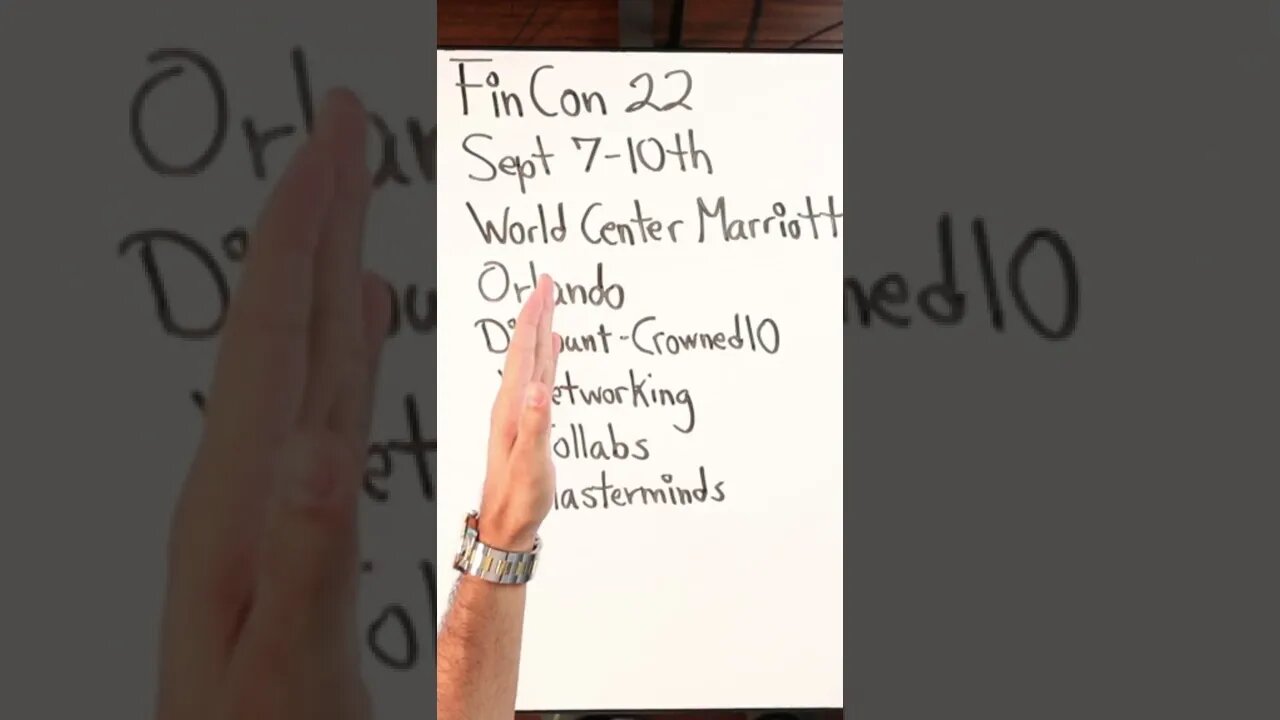 FinCon 22
Sept 7-10th
World Center Marriott
Orlando
Discount-Crowned10
Networking
Collabs
Masterminds